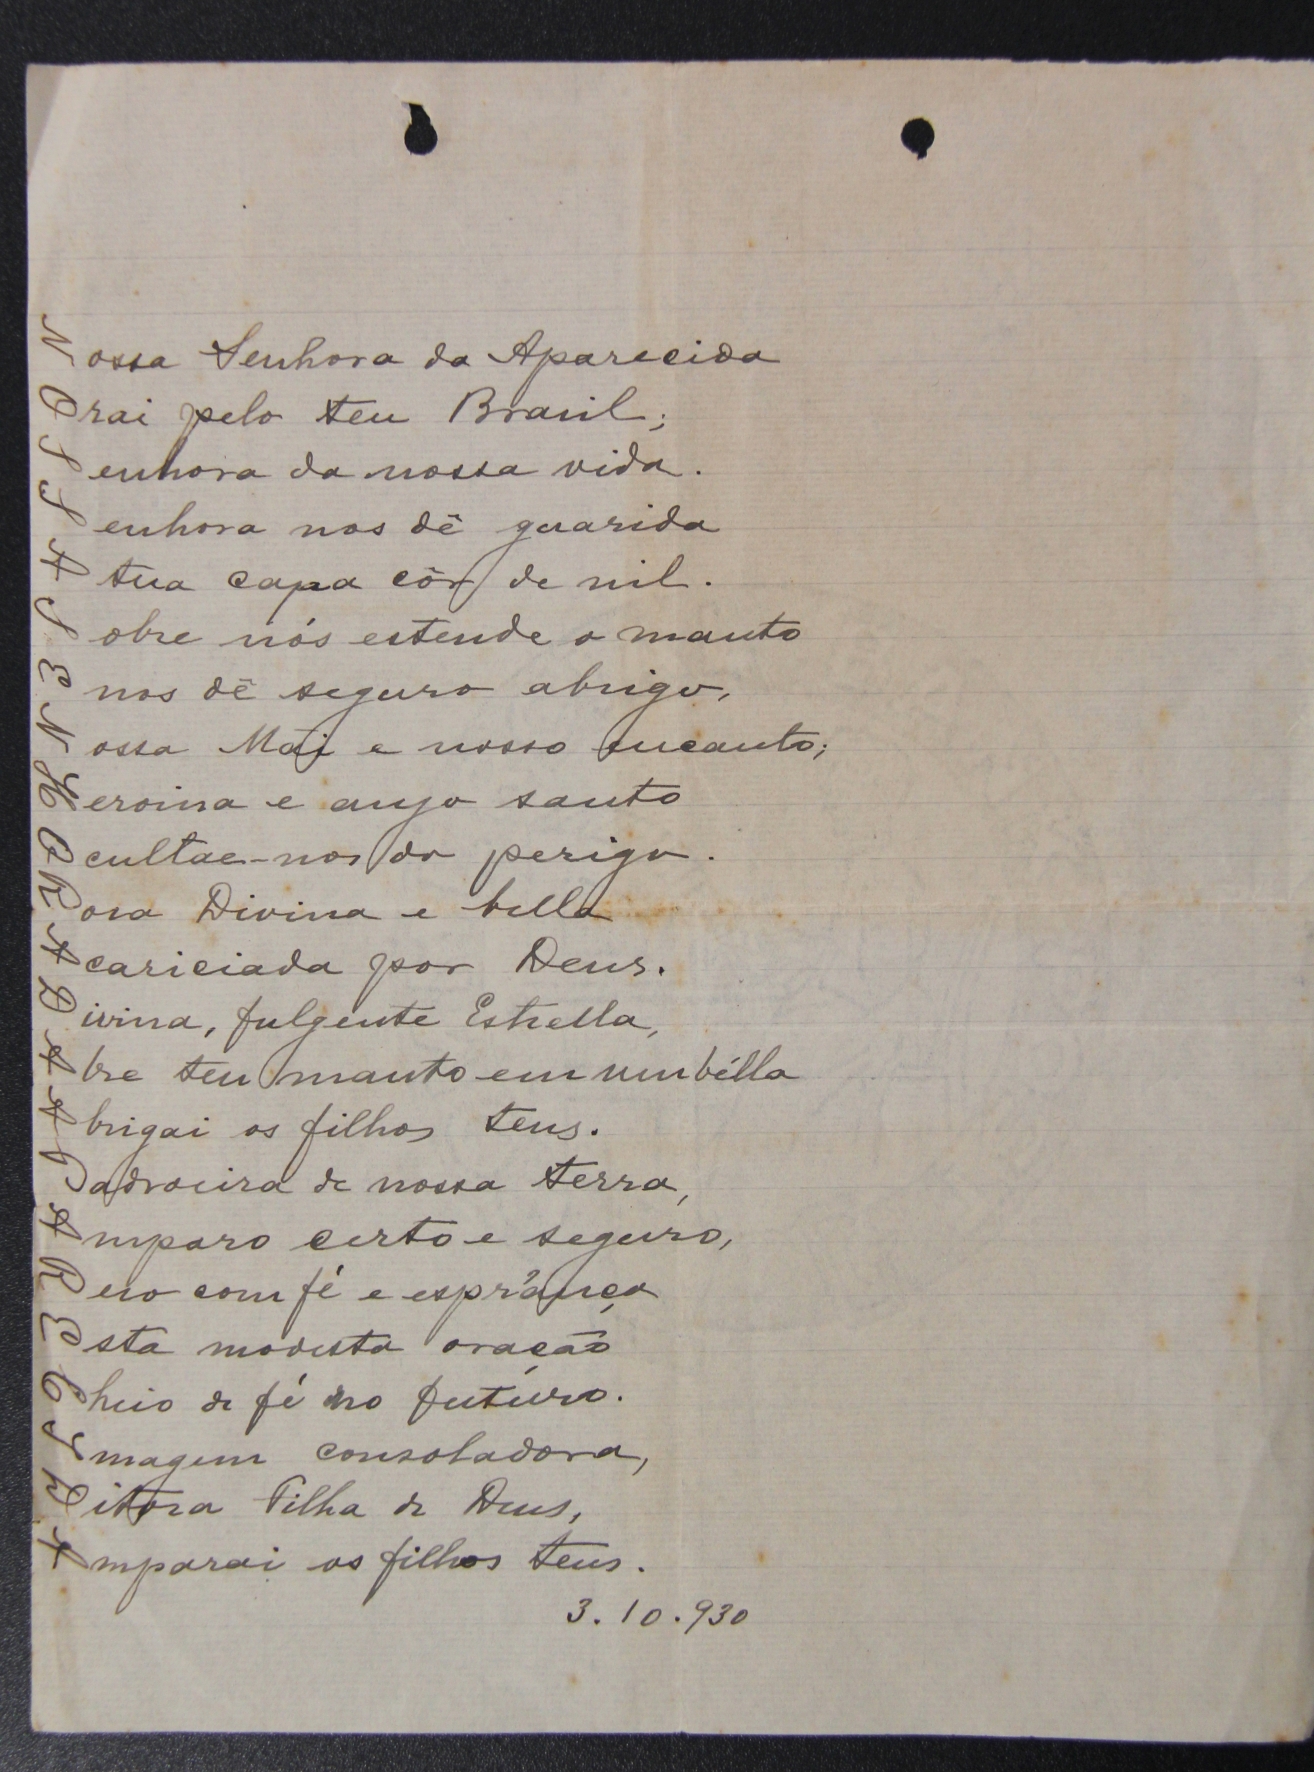 Nossa Senhora da Aparecida
Orai pelo teu Brasil;
Senhora da nossa vida.
Senhora nos dê guarida
A tua capa côr de nil.
Sobre nós estende o manto
E nos dê seguro abrigo,
Nossa Mãi e nosso encanto;
Heroina e anjo santo
Ocultae-nos do perigo.
Rosa Divina e bella
Acariciada por Deus.
Divina, fulgente Estrella,
Abre teu manto em umbélla
Abrigai os filhos teus.
Padroeira de nossa terra,
Amparo certo e seguro,
Reso com fé e espr'ança
Esta modesta oração
Cheio de fé no futuro.
Imagem consoladora,
Ditosa Filha de Deus,
Amparai os filhos teus.
3.10.930